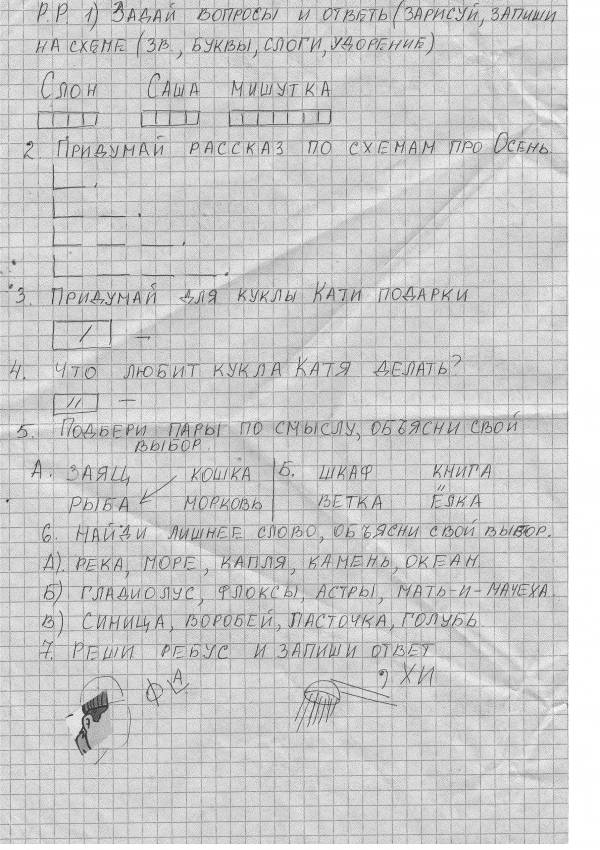 Р.Р 1) ЗАДАЙ ВОПРОСЫ И ОТВЕТЬ (ЗАРИСУЙ, ЗАПИШИ
НА СХЕМЕ (ЗВ., БУКВЫ, СЛОГИ, УДОРЕНИЕ)
СЛОН САША МИШУТКА
2 ПРИДУМАЙ РАССКАЗ ПО СХЕМАМ ПРО ОСЕНЬ.
3. ПРИДУМАЙ ДЛЯ КУКЛЫ КАТИ ПОДАРКИ
/ —
4. ЧТО ЛЮБИТ КУКЛА КАТЯ ДЕЛАТЬ?
// —
5. ПОДБЕРИ ПАРЫ ПО СМЫСЛУ, ОБЪЯСНИ СВОЙ
ВЫБОР.
А. ЗАЯЦ КОШКА Б. ШКАФ КНИГА
РЫБА МОРКОВЬ ВЕТКА ЁЛКА
6. НАЙДИ ЛИШНЕЕ СЛОВО, ОБЪЯСНИ СВОЙ ВЫБОР.
А). РЕКА, МОРЕ, КАПЛЯ, КАМЕНЬ, ОКЕАН.
Б) ГЛАДИОЛУС, ФЛОКСЫ, АСТРЫ, МАТЬ-И-МАЧЕХА.
В) СИНИЦА, ВОРОБЕЙ, ЛАСТОЧКА, ГОЛУБЬ
7. РЕШИ РЕБУС И ЗАПИШИ ОТВЕТ
А , ХИ